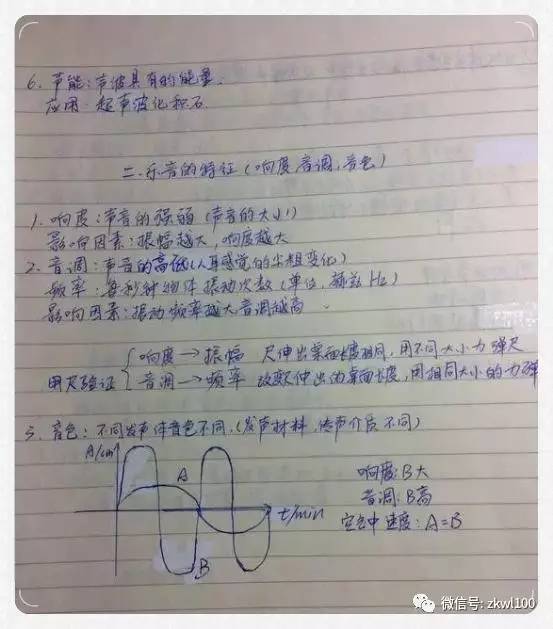 6. 声能:声波具有的能量.
应用:超声波化积石.
二.乐音的特征(响度,音调,音色)
1. 响度:声音的强弱(声音的大小)
影响因素:振幅越大,响度越大
2. 音调:声音的高低(人耳感觉的尖粗变化)
频率:每秒钟物体振动次数(单位,赫兹 Hz)
影响因素:振动频率越大音调越高.
用尺验证
响度→振幅 尺伸出桌面长度相同,用不同大小力弹尺
音调→频率 改变伸出的桌面长度,用相同大小的力弹
3. 音色:不同发声体音色不同.(发声材料,传声介质不同)
A/cm
A
B
t/min
响度:B大
音调:B高
空气中速度:A=B
微信号: zkwl100